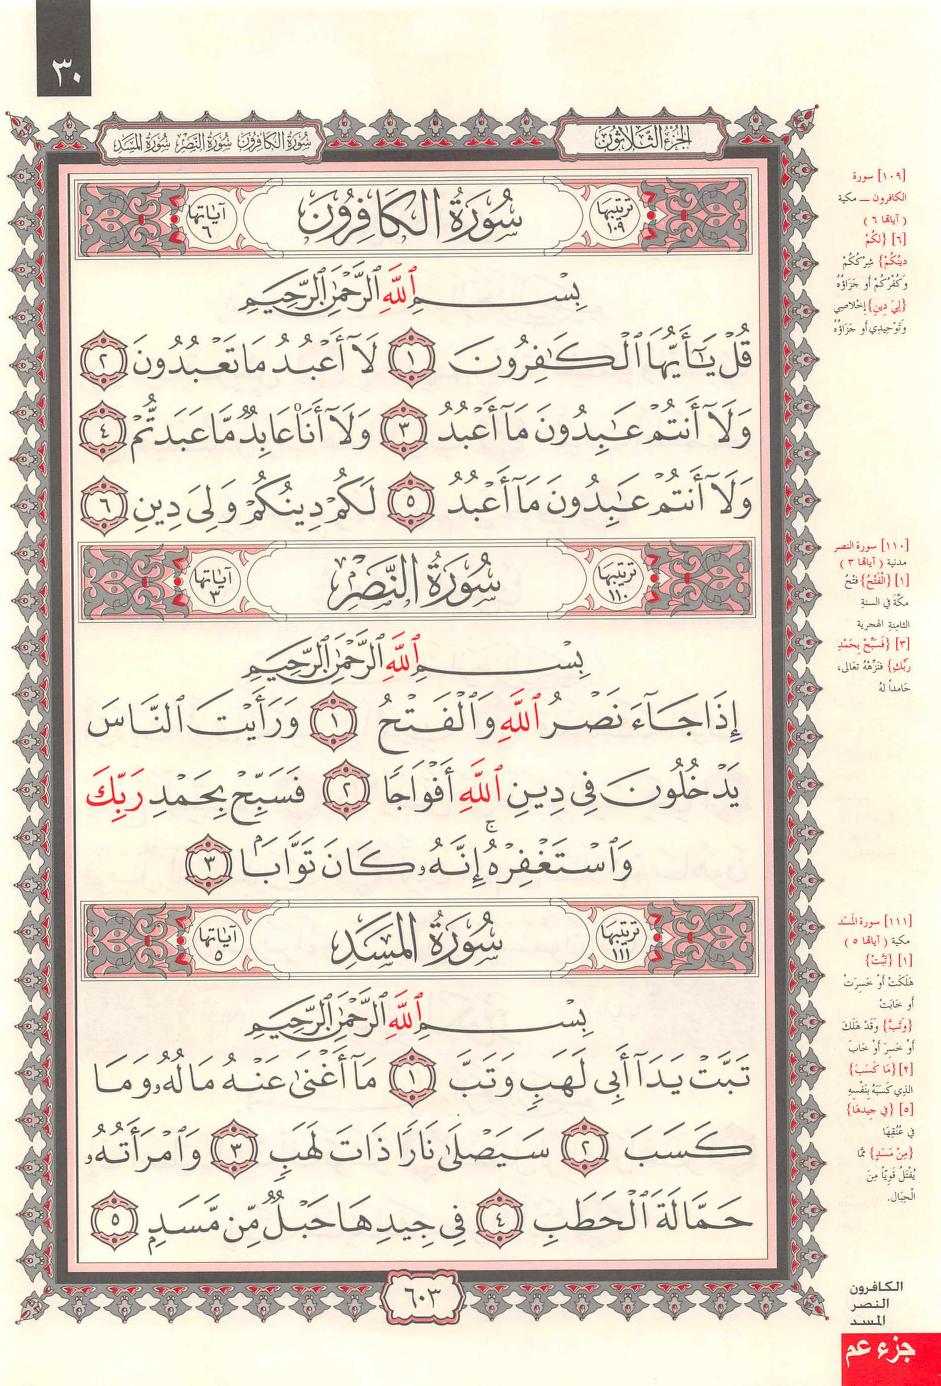 ٣٠
الجزء الثلاثون
سورة الكافرون سورة النصر سورة المسد
ترتيبها ١٠٩
سُورَةُ الكَافِرُونَ
آياتها ٦
بِسْمِ ٱللَّهِ ٱلرَّحْمَٰنِ ٱلرَّحِيمِ
قُلْ يَٰٓأَيُّهَا ٱلْكَٰفِرُونَ ١ لَآ أَعْبُدُ مَا تَعْبُدُونَ ٢
وَلَآ أَنتُمْ عَٰبِدُونَ مَآ أَعْبُدُ ٣ وَلَآ أَنَا۠ عَابِدٌ مَّا عَبَدتُّمْ ٤
وَلَآ أَنتُمْ عَٰبِدُونَ مَآ أَعْبُدُ ٥ لَكُمْ دِينُكُمْ وَلِيَ دِينِ ٦
ترتيبها ١١٠
سُورَةُ النَّصْرِ
آياتها ٣
بِسْمِ ٱللَّهِ ٱلرَّحْمَٰنِ ٱلرَّحِيمِ
إِذَا جَآءَ نَصْرُ ٱللَّهِ وَٱلْفَتْحُ ١ وَرَأَيْتَ ٱلنَّاسَ
يَدْخُلُونَ فِي دِينِ ٱللَّهِ أَفْوَاجًا ٢ فَسَبِّحْ بِحَمْدِ رَبِّكَ
وَٱسْتَغْفِرْهُ ۚ إِنَّهُۥ كَانَ تَوَّابًۢا ٣
ترتيبها ١١١
سُورَةُ المَسَدِ
آياتها ٥
بِسْمِ ٱللَّهِ ٱلرَّحْمَٰنِ ٱلرَّحِيمِ
تَبَّتْ يَدَآ أَبِي لَهَبٍ وَتَبَّ ١ مَآ أَغْنَىٰ عَنْهُ مَالُهُۥ وَمَا
كَسَبَ ٢ سَيَصْلَىٰ نَارًا ذَاتَ لَهَبٍ ٣ وَٱمْرَأَتُهُۥ
حَمَّالَةَ ٱلْحَطَبِ ٤ فِي جِيدِهَا حَبْلٌ مِّن مَّسَدٍۭ ٥
٦٠٣
[١٠٩] سورة
الكافرون ــ مكية
( آياتها ٦ )
[٦] {لَكُمْ
دِينُكُمْ} شِرْكُكُمْ
وَكُفْرُكُمْ أو جَزَاؤُهُ
{لِيَ دِينِ} إخْلاصِي
وَتَوْحِيدِي أو جَزَاؤُهُ
[١١٠] سورة النصر
مدنية ( آياتها ٣ )
[١] {الْفَتْحُ} فَتْحُ
مكّةَ في السنةِ
الثامنةِ الهجرية
[٣] {فَسَبِّحْ بِحَمْدِ
رَبِّكَ} فَنَزِّهْهُ تَعَالى،
حَامداً لهُ
[١١١] سورة المَسَد
مكية ( آياتها ٥ )
[١] {تَبَّتْ}
هَلَكَتْ أوْ خَسِرَتْ
أو خَابَتْ
{وَتَبَّ} وَقَدْ هَلَكَ
أوْ خَسِرَ أوْ خَابَ
[٢] {مَا كَسَبَ}
الذِي كَسَبَهُ بِنَفْسِهِ
[٥] {فِي جِيدِهَا}
في عُنُقِهَا
{مِنْ مَسَدٍ} مِمَّا
يُفْتَلُ قَوِيّاً مِنَ
الْحِبَالِ.
الكافرون
النصر
المسد
جزء عم